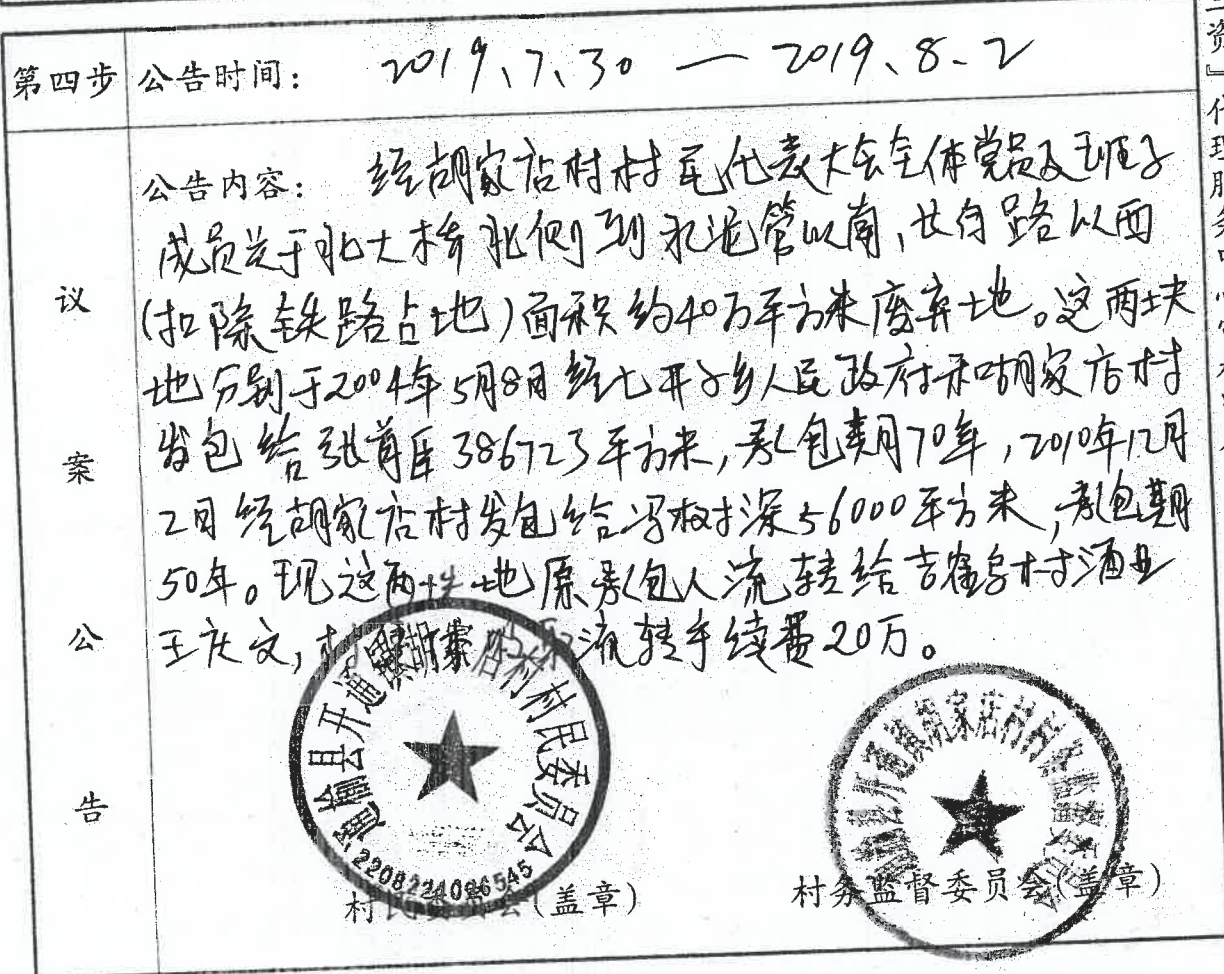 第四步 公告时间: 2019、7、30 — 2019、8、2
议案公告
公告内容: 经胡家店村村民代表大会全体党员及班子
成员关于北大桥北侧到水泥管以南,长白路以西
(扣除铁路占地)面积约40万平方米废弃地。这两块
地分别于2004年5月8日经七井子乡人民政府和胡家店村
发包给张首臣386723平方米,承包期70年,2010年12月
2日经胡家店村发包给冯树深56000平方米,承包期
50年。现这两块地原承包人流转给吉
村酒业
王庆文,
流转手续费20万。
通榆县开通镇胡家店村村民委员会
2208221086545
村民委员会(盖章)
通榆县开通镇胡家店村村务监督委员会
村务监督委员会(盖章)
资』代理服务